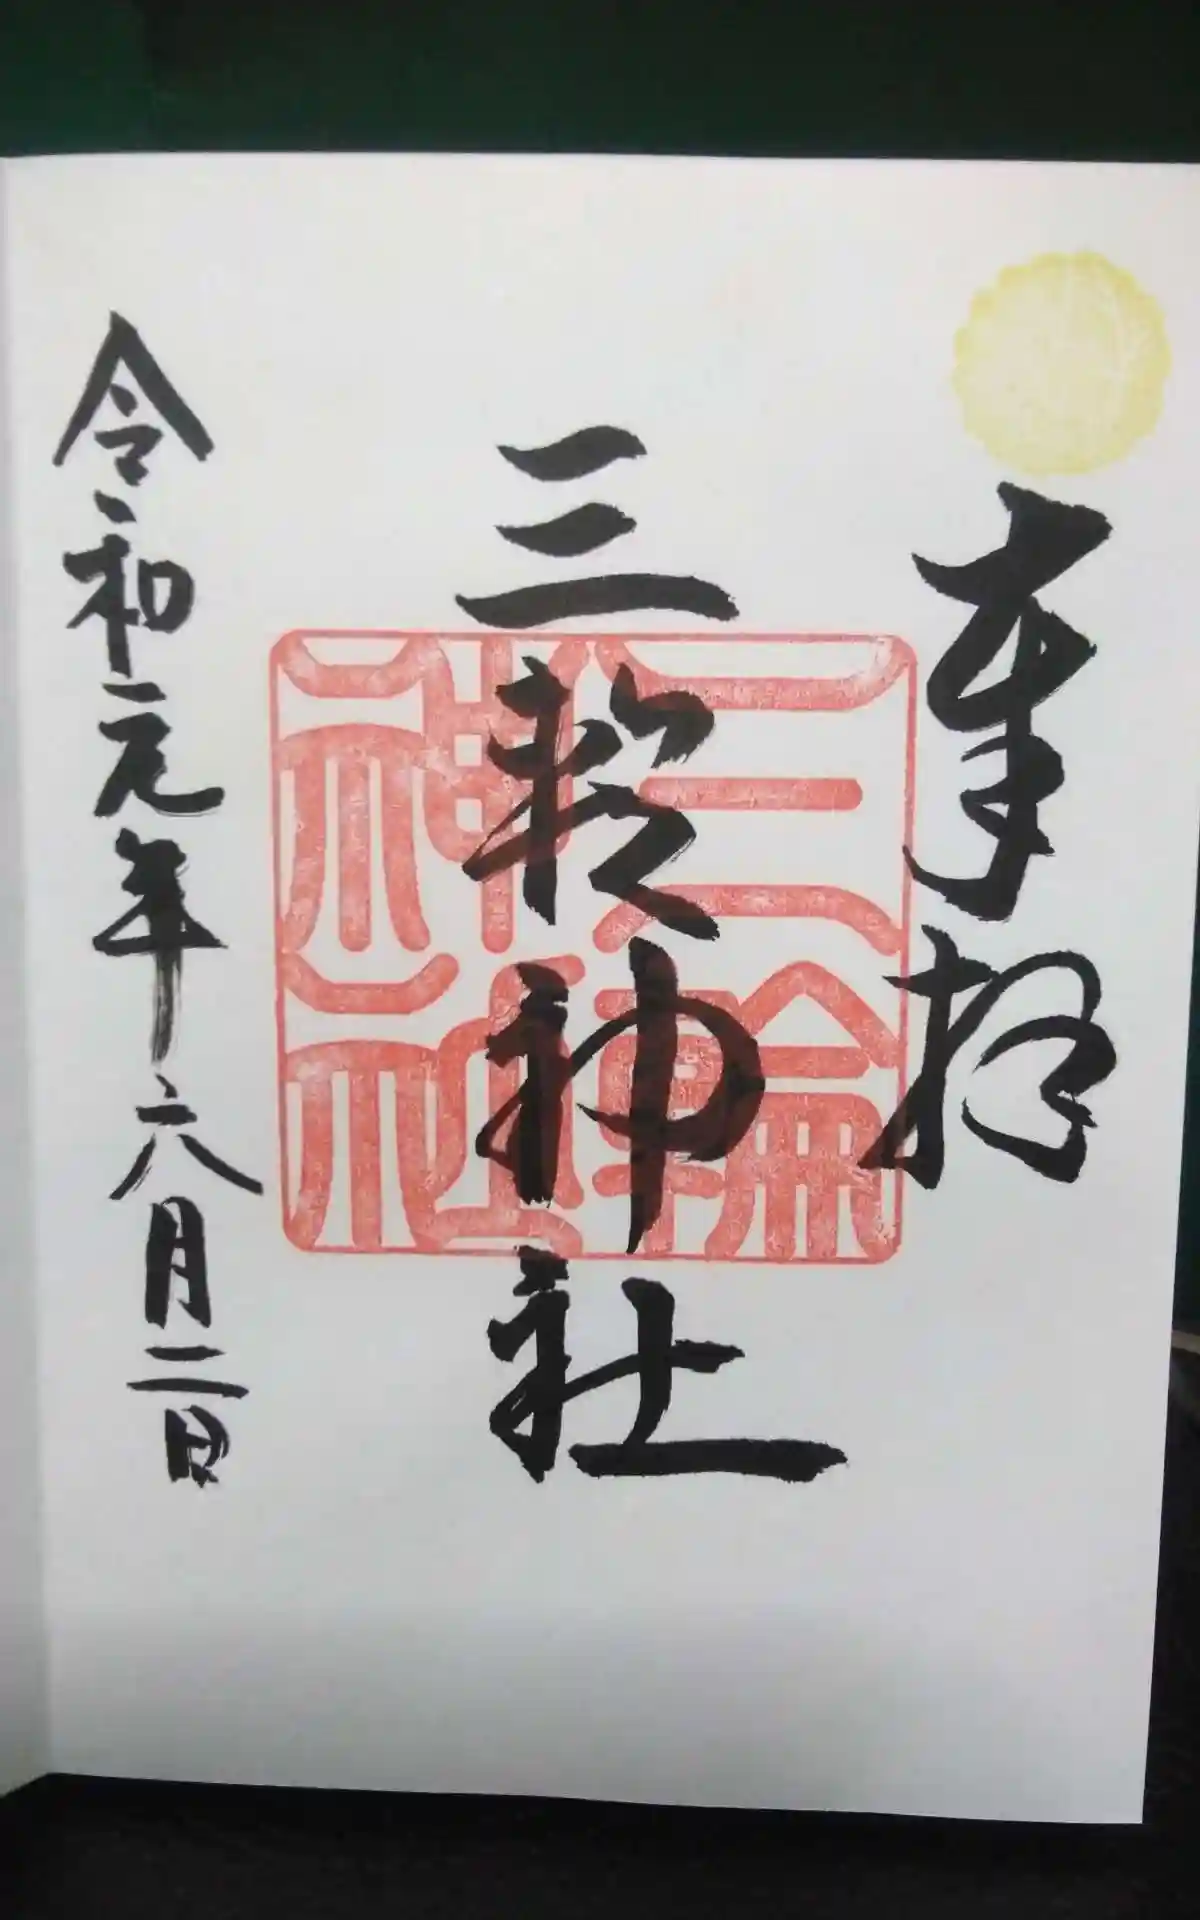 奉拝
三輪神社
三輪
神社
令和元年六月二日